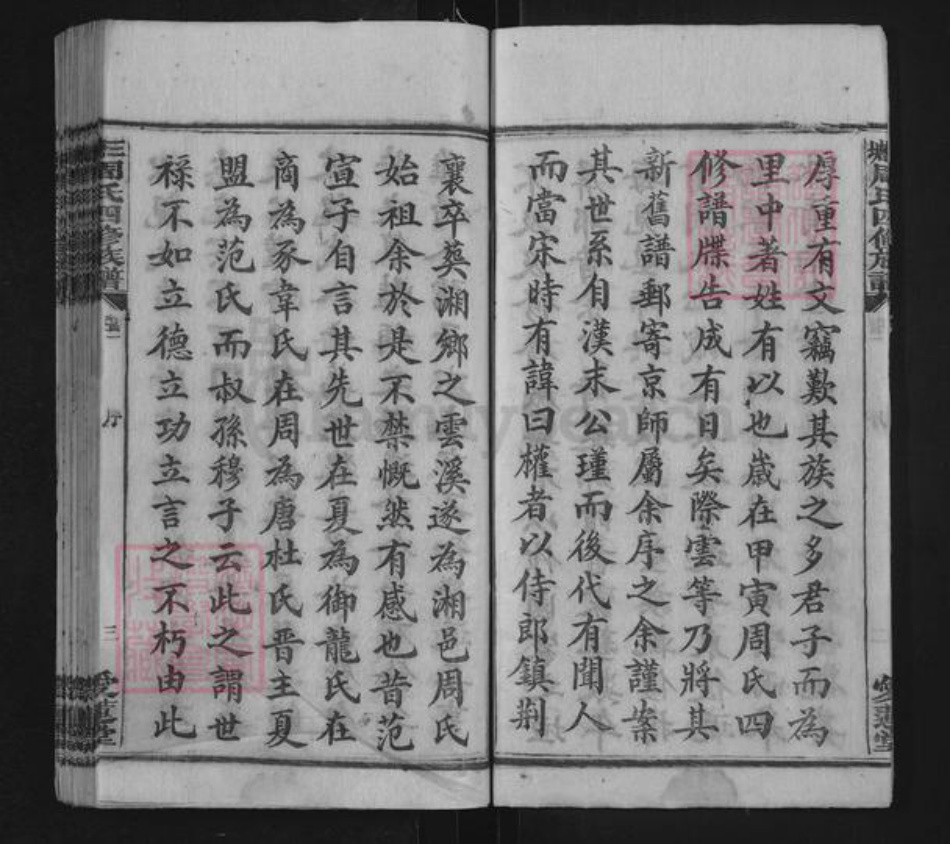 厚重有文竊歎其族之多君子而為
里中著姓有以也歲在甲寅周氏四
修譜牒告成有日矣際雲等乃將其
新舊譜郵寄京師屬余序之余謹案
其世系自漢末公瑾而後代有聞人
而當宋時有諱曰權者以侍郎鎮荆
襄卒葬湘鄉之雲溪遂為湘邑周氏
始祖余於是不禁慨然有感也昔范
宣子自言其先世在夏為御龍氏在
商為豕韋氏在周為唐杜氏晋主夏
盟為范氏而叔孫穆子云此之謂世
祿不如立德立功立言之不朽由此
周氏四修族譜
序
三
愛蓮堂